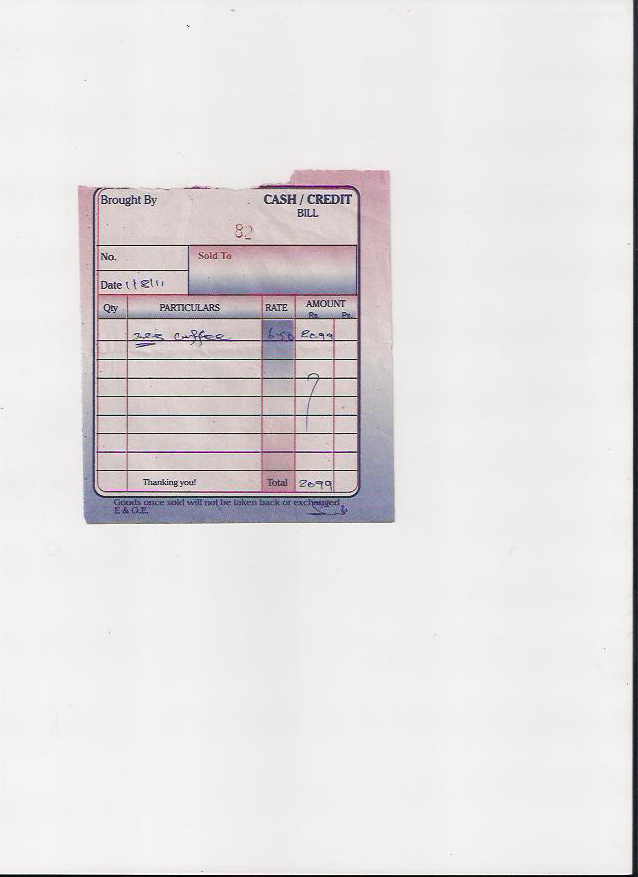 Brought By
CASH / CREDIT
BILL
82
No.
Sold To
Date 1/8/11
Qty PARTICULARS RATE AMOUNT
Rs. Ps.
323 coffee 6.50 2099
Thanking you! Total 2099
Goods once sold will not be taken back or exchanged
E & O.E.